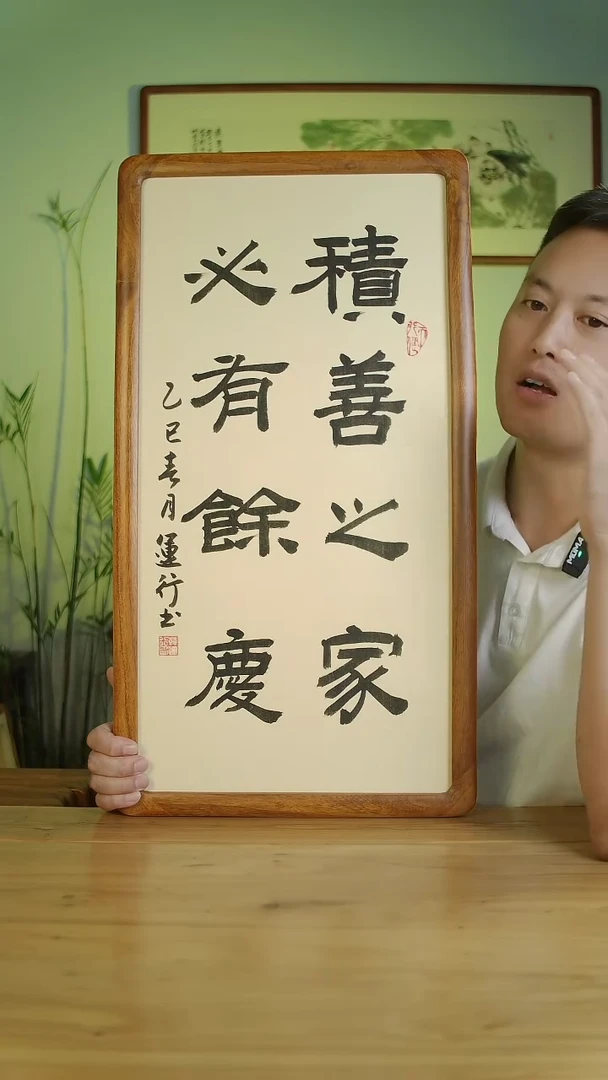 積善之家
必有餘慶
乙巳春月運行书
MOMA